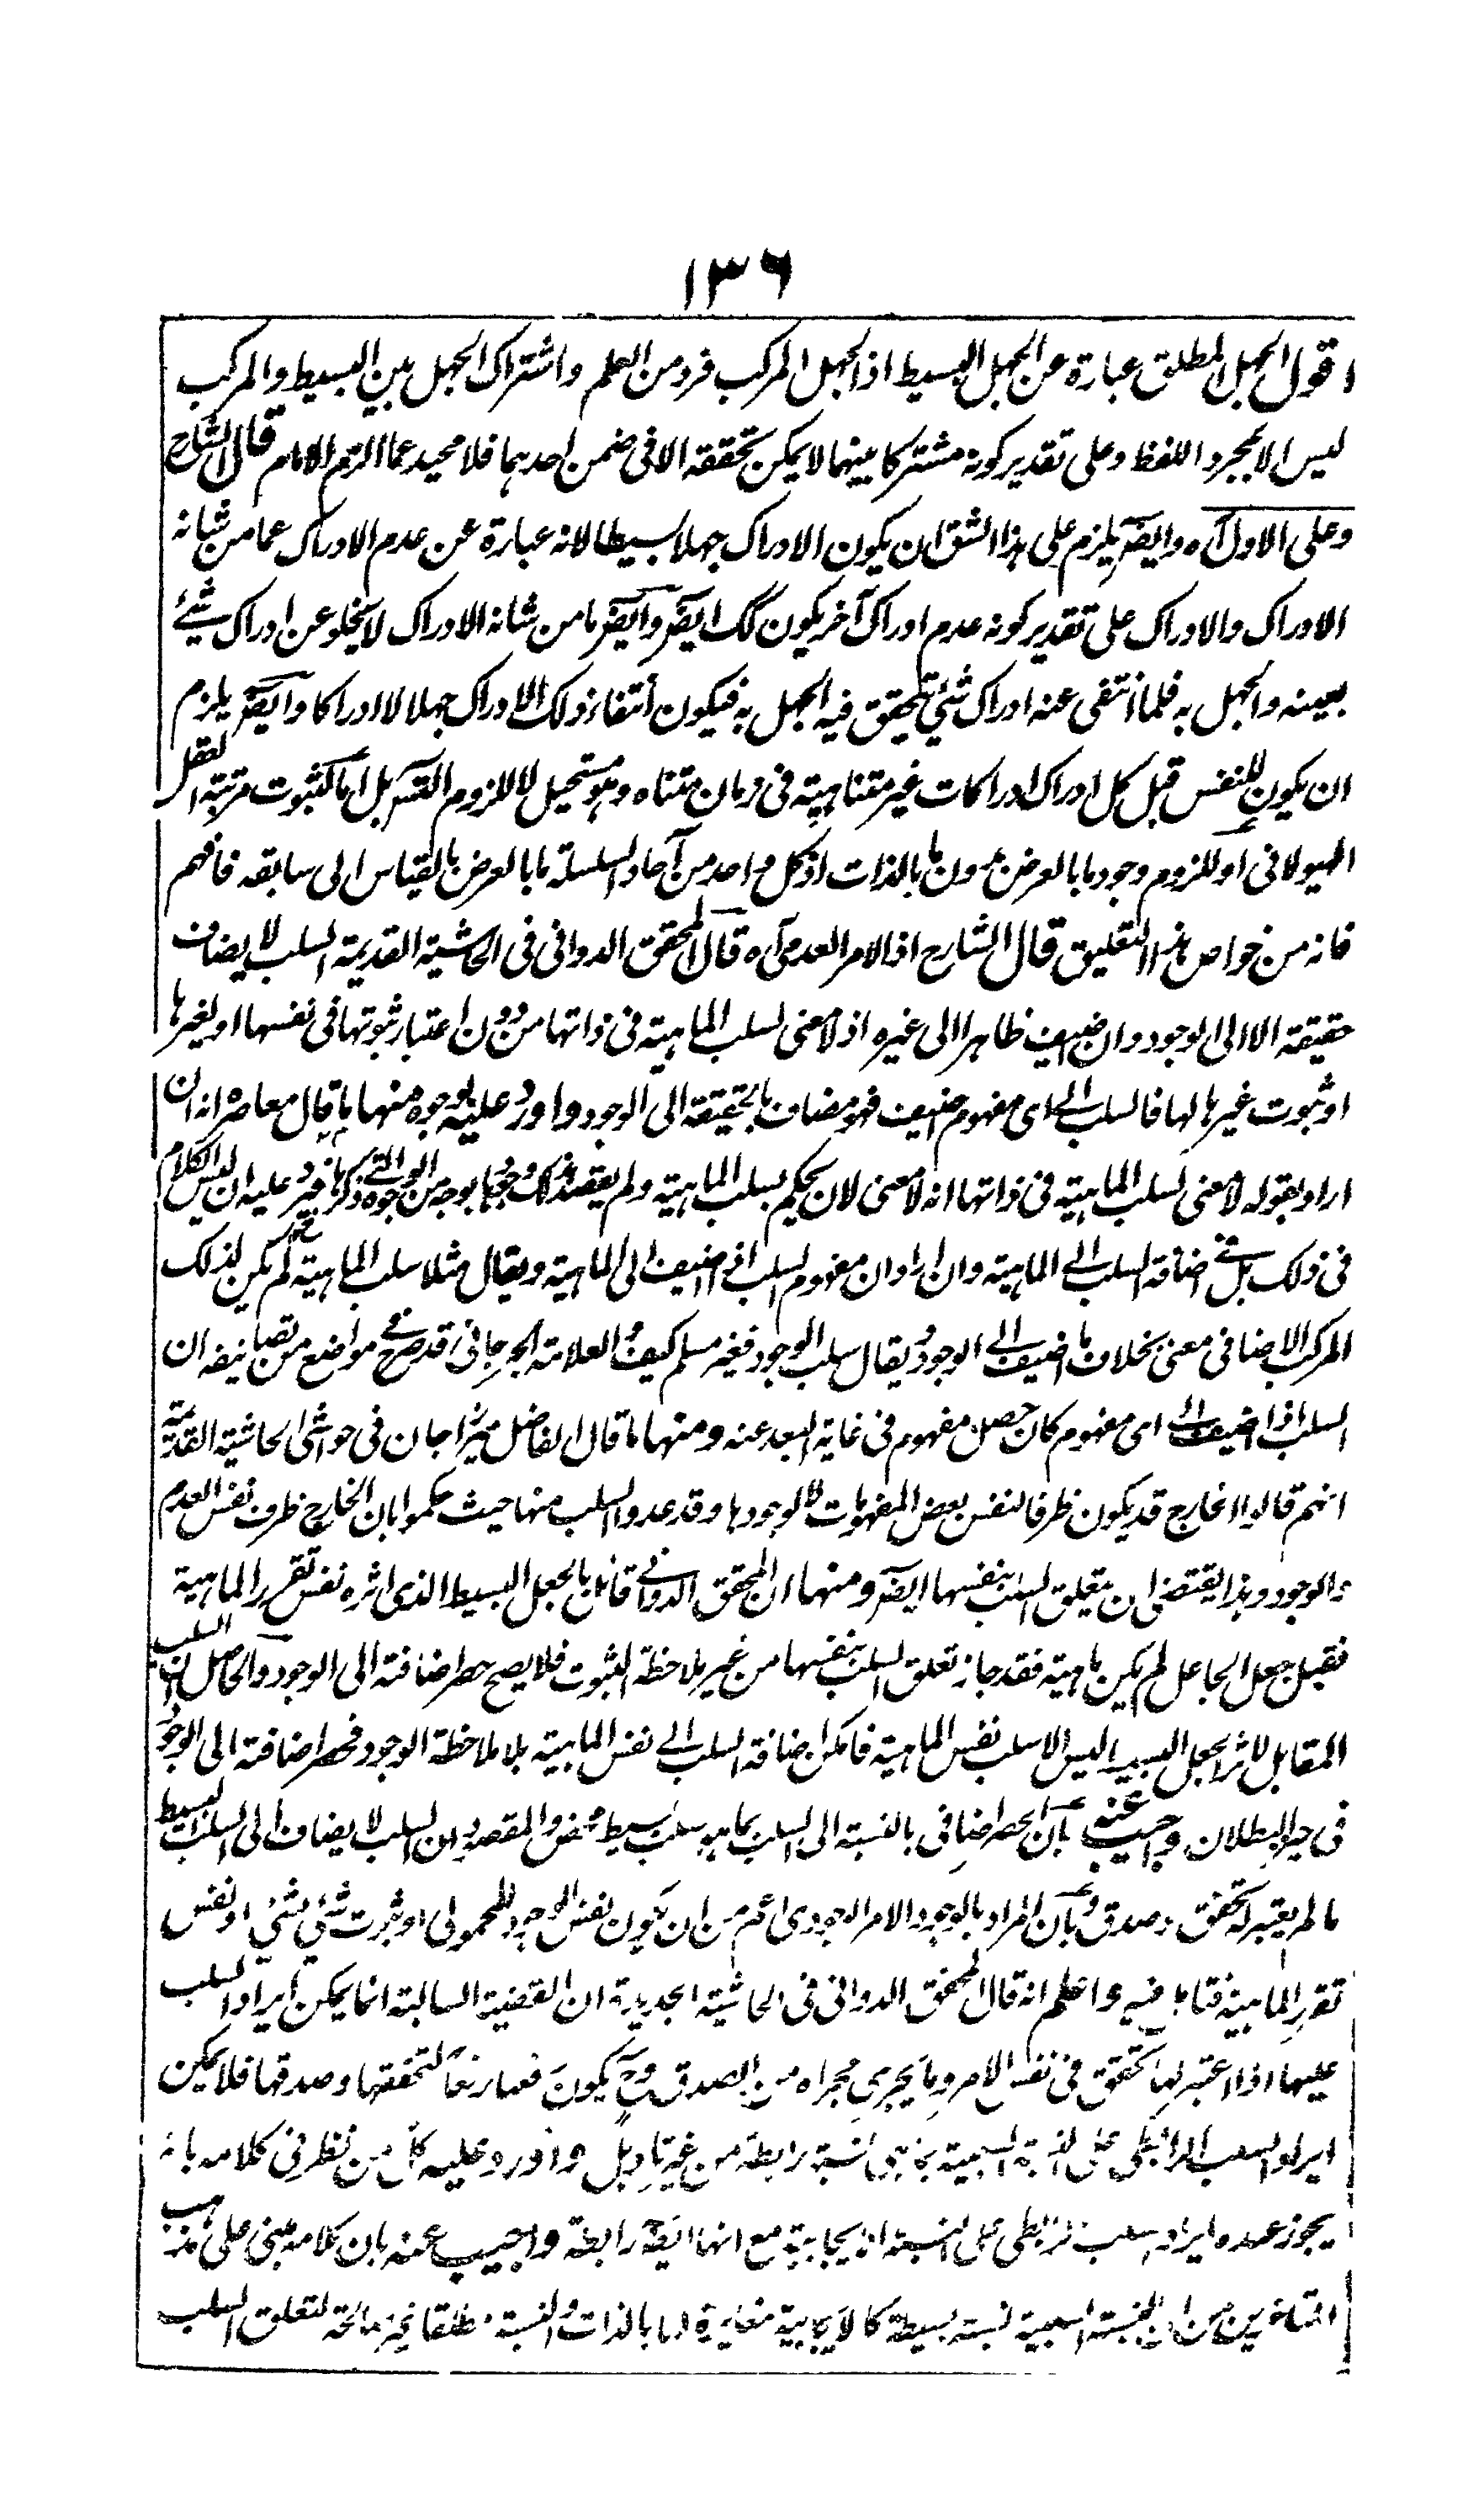 ١٣٦
اقول الجهل المطلق عبارة عن الجهل البسيط اذ الجهل المركب فرد من العلم واشتراك الجهل بين البسيط والمركب
ليس الا بمجرد اللفظ وعلى تقدير كونه مشتركا بينهما لا يمكن تحققه الا فى ضمن احدهما فلا محيد عما الزم الامام قال الشارح
وعلى الاول آه وايضاً يلزم على هذا الشق ان يكون الادراك جهلا بسيطا لانه عبارة عن عدم الادراك عما من شانه
الادراك والادراك على تقدير كونه عدم ادراك آخر يكون كك ايضاً وايضاً ما من شانه الادراك لا يخلو عن ادراك شيئ
بعينه والجهل به فلما انتفى عنه ادراك شئ تحقق فيه الجهل به فيكون انتفاء ذلك الادراك جهلا لا ادراكا وايضاً يلزم
ان يكون للنفس قبل كل ادراك ادراكات غير متناهية فى زمان متناه وهو مستحيل لا للزوم التسلسل بل اما لثبوت مرتبة العقل
الهيولانى او للزوم وجود ما بالعرض بدون ما بالذات اذ كل واحد من آحاد السلسلة ما بالعرض بالقياس الى سابقه فافهم
فانه من خواص هذا التعليق قال الشارح اذ الامر العدمى آه قال المحقق الدوانى فى الحاشية القديمة السلب لا يضاف
حقيقة الا الى الوجود وان اضيف ظاهرا الى غيره اذ لا معنى لسلب الماهية فى ذاتها من دون اعتبار ثبوتها فى نفسها او لغيرها
او ثبوت غيرها لها فالسلب الى اى مفهوم اضيف فهو مضاف بالحقيقة الى الوجود واورد عليه بوجوه منها ما قال معاصره انه ان
اراد بقوله لا معنى لسلب الماهية فى ذاتها انه لا معنى لان يحكم بسلب الماهية ولم يقصد بذلك حكما بوجه من الوجوه التى ذكرها فيرد عليه ان ليس الكلام
فى ذلك بل فى اضافة السلب الى الماهية وان اراد ان مفهوم السلب اذا اضيف الى الماهية ويقال مثلا سلب الماهية لم يكن لذلك
المركب الاضافى معنى بخلاف ما اضيف الى الوجود ويقال سلب الوجود فغير مسلم كيف والعلامة الجرجانى قد صرح فى مواضع من تصانيفه ان
السلب اذا اضيف الى اى مفهوم كان حصل مفهوم فى غاية البعد عنه ومنها ما قال الفاضل ميرزاجان فى حواشى الحاشية القديمة
انهم قالوا الخارج قد يكون ظرفا لنفس بعض المفهومات لا لوجودها وقد عدوا السلب منها حيث حكموا بان الخارج ظرف نفس العدم
لا الوجود وهذا يقتضى ان يتعلق السلب بنفسها ايضاً ومنها ان المحقق الدوانى قائل بالجعل البسيط الذى اثره نفس تقرر الماهية
فقبل جعل الجاعل لم يكن ماهية فقد جاز تعلق السلب بنفسها من غير ملاحظة الثبوت فلا يصح حصر اضافته الى الوجود والحاصل ان السلب
المقابل لاثر الجعل البسيط ليس الا سلب نفس الماهية فامكن اضافة السلب الى نفس الماهية بلا ملاحظة الوجود فحصر اضافته الى الوجود
فى حيز البطلان واجيب عنه بان الحصر اضافى بالنسبة الى السلب بما هو سلب بسيط محض والمقصود ان السلب لا يضاف الى السلب البسيط
ما لم يعتبر له تحقق وصدق وبان المراد بالوجود الامر الوجودى اعم من ان يكون نفس الوجود المحمولى او ثبوت شئ لشئ او نفس
تقرر الماهية فتامل فيه واعلم انه قال المحقق الدوانى فى الحاشية الجديدة ان القضية السالبة انما يمكن ايراد السلب
عليها اذا اعتبر لها تحقق فى نفس الامر وما يجرى مجراه من الصدق وح يكون رفعا لتحققها وصدقها فلا يمكن
ايراد السلب الرابطى على النسبة السلبية بما هى نسبة رابطة من غير تاويل واورد عليه كل من نظر فى كلامه بانه
يجوز عنده ايراد السلب الرابطى على النسبة الايجابية مع انها ايضاً رابطة واجيب عنه بان كلامه مبنى على مذهب
المتاخرين من ان النسبة السلبية نسبة بسيطة كالايجابية مغايرة لها بالذات والنسبة مطلقا غير صالحة لتعلق السلب